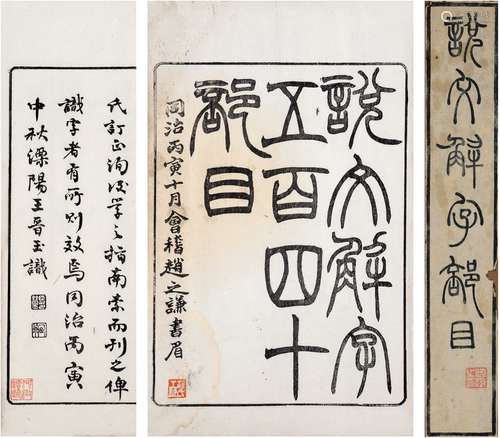 說文解字部目
說文解字
五百四十
部目
同治丙寅十月會稽趙之謙書眉
氏訂正洵後學之指南索而刊之俾
識字者有所則效焉同治丙寅
中秋溧陽王晉玉識